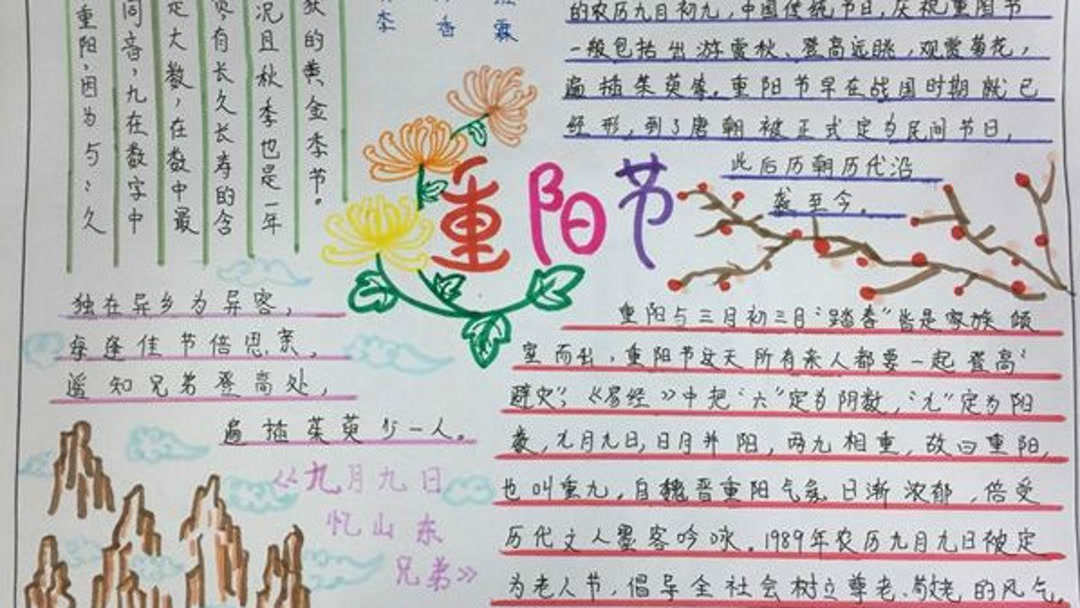 重阳,因为与:久
同音,九在数字中
大数,在数中最
有长久长寿的含
况且秋季也是一年
获的黄金季节。
李
香
霖
的农历九月初九,中国传统节日,庆祝重国节
一般包括出游赏秋、登高远眺,观赏菊花,
遍插茱萸等。重阳节早在战国时期就已
经形,到了唐朝被正式定为民间节日,
此后历朝历代沿
袭至今。
重阳节
独在异乡为异客,
每逢佳节倍思亲,
遥知兄弟登高处,
遍插茱萸少一人。
《九月九日
忆山东
兄弟》
重阳与三月初三日“踏春”皆是家族倾
室而出,重阳节这天所有亲人都要一起登高“
避灾”,《易经》中把“六”定为阴数,“九”定为阳
数,九月九日,日月并阳,两九相重,故曰重阳,
也叫重九,自魏晋重阳气氛日渐浓郁,倍受
历代文人墨客吟咏。1989年农历九月九日被定
为老人节,倡导全社会树立尊老、敬老的风气。